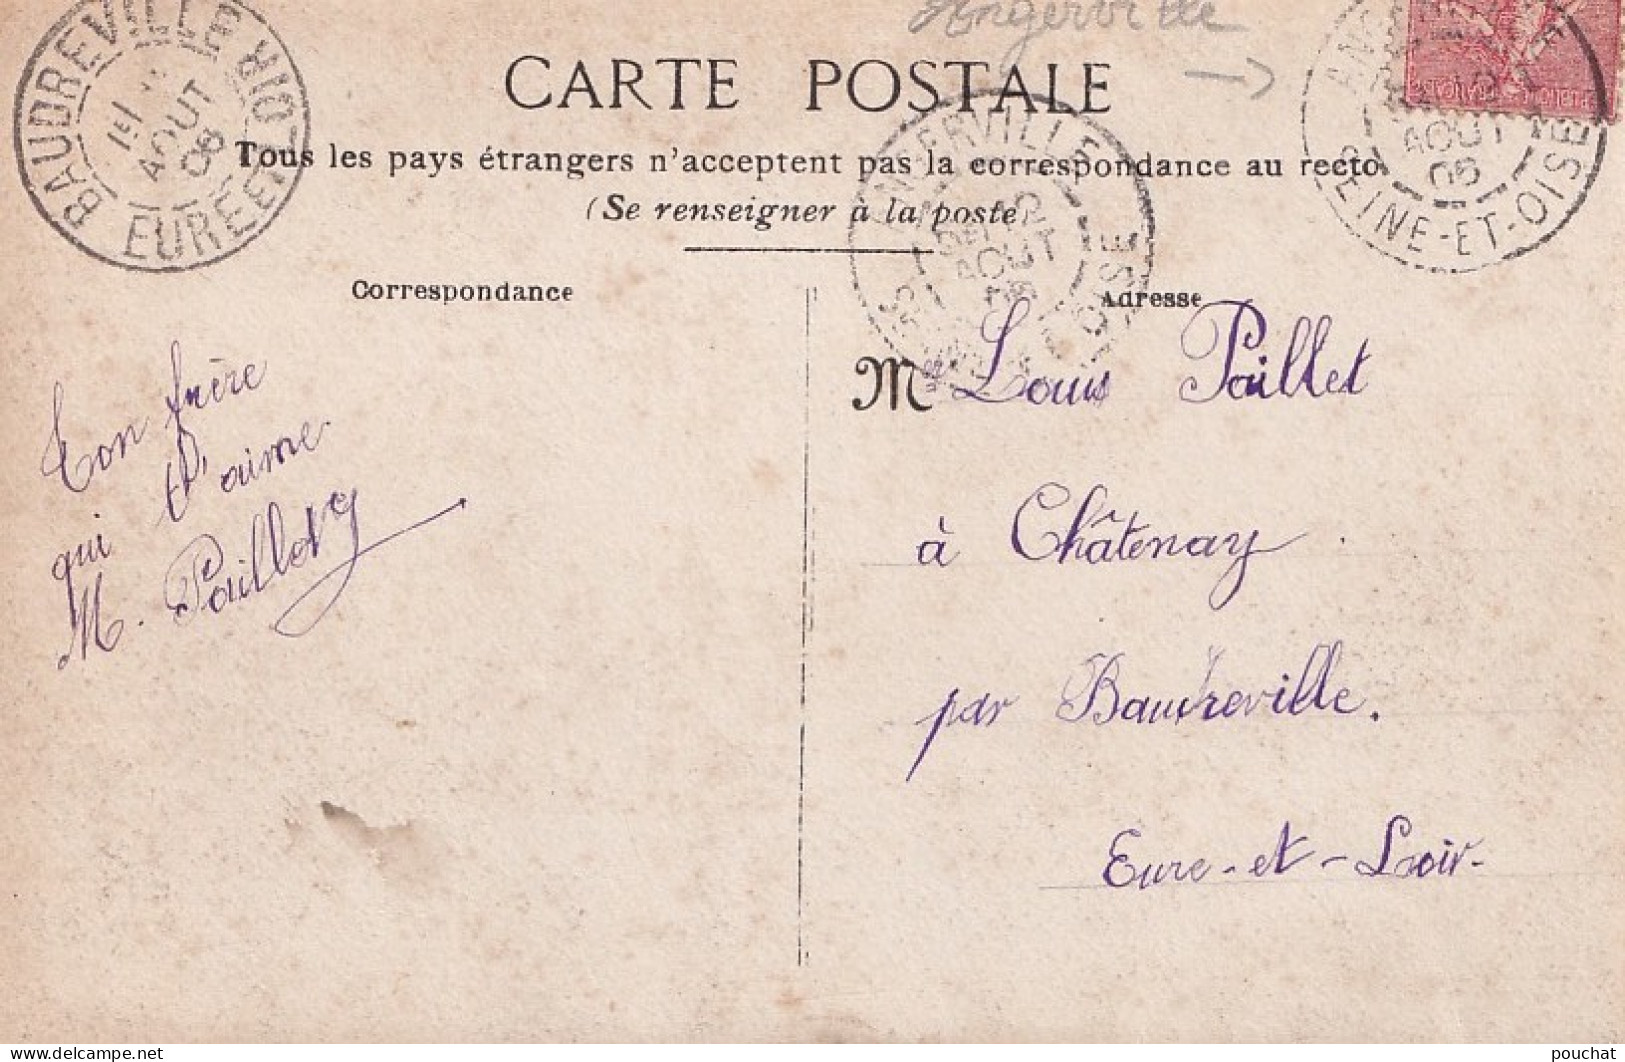 Angerville
CARTE POSTALE
Tous les pays étrangers n'acceptent pas la correspondance au recto
(Se renseigner à la poste)
BAUDREVILLE
EURE-ET-LOIR
AOUT
06
ANGERVILLE
AOUT
OISE
AOUT
06
SEINE-ET-OISE
Correspondance
Adresse
Ton frère
qui t'aime
M. Paillet
M Louis Paillet
à Châtenay
par Baudreville.
Eure-et-Loir-
delcampe.net
pouchat